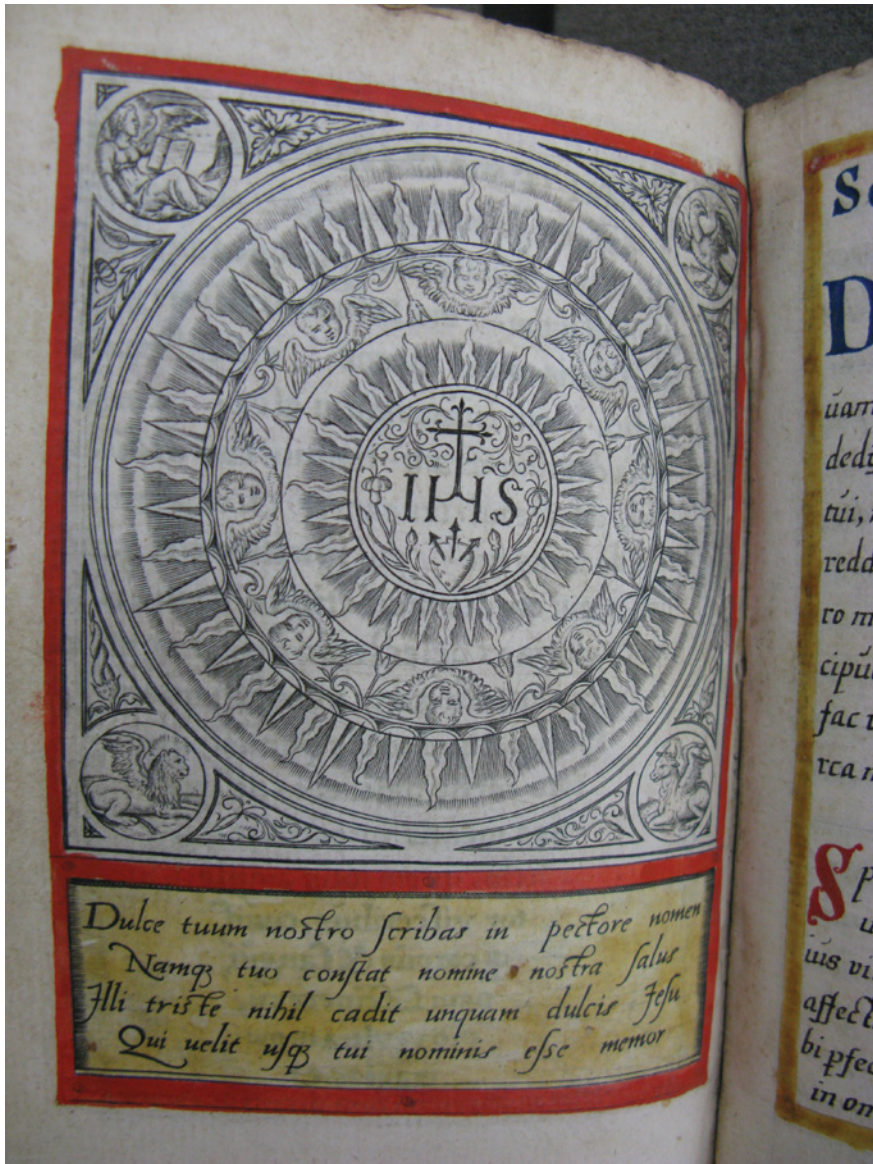 IHS
Dulce tuum nostro scribas in pectore nomen
Namqꝫ tuo constat nomine nostra salus
Illi triste nihil cadit unquam dulcis Jesu
Qui uelit usqꝫ tui nominis esse memor
D
uam
tui,
cipu
fac
rca
uis vi
affect
in om